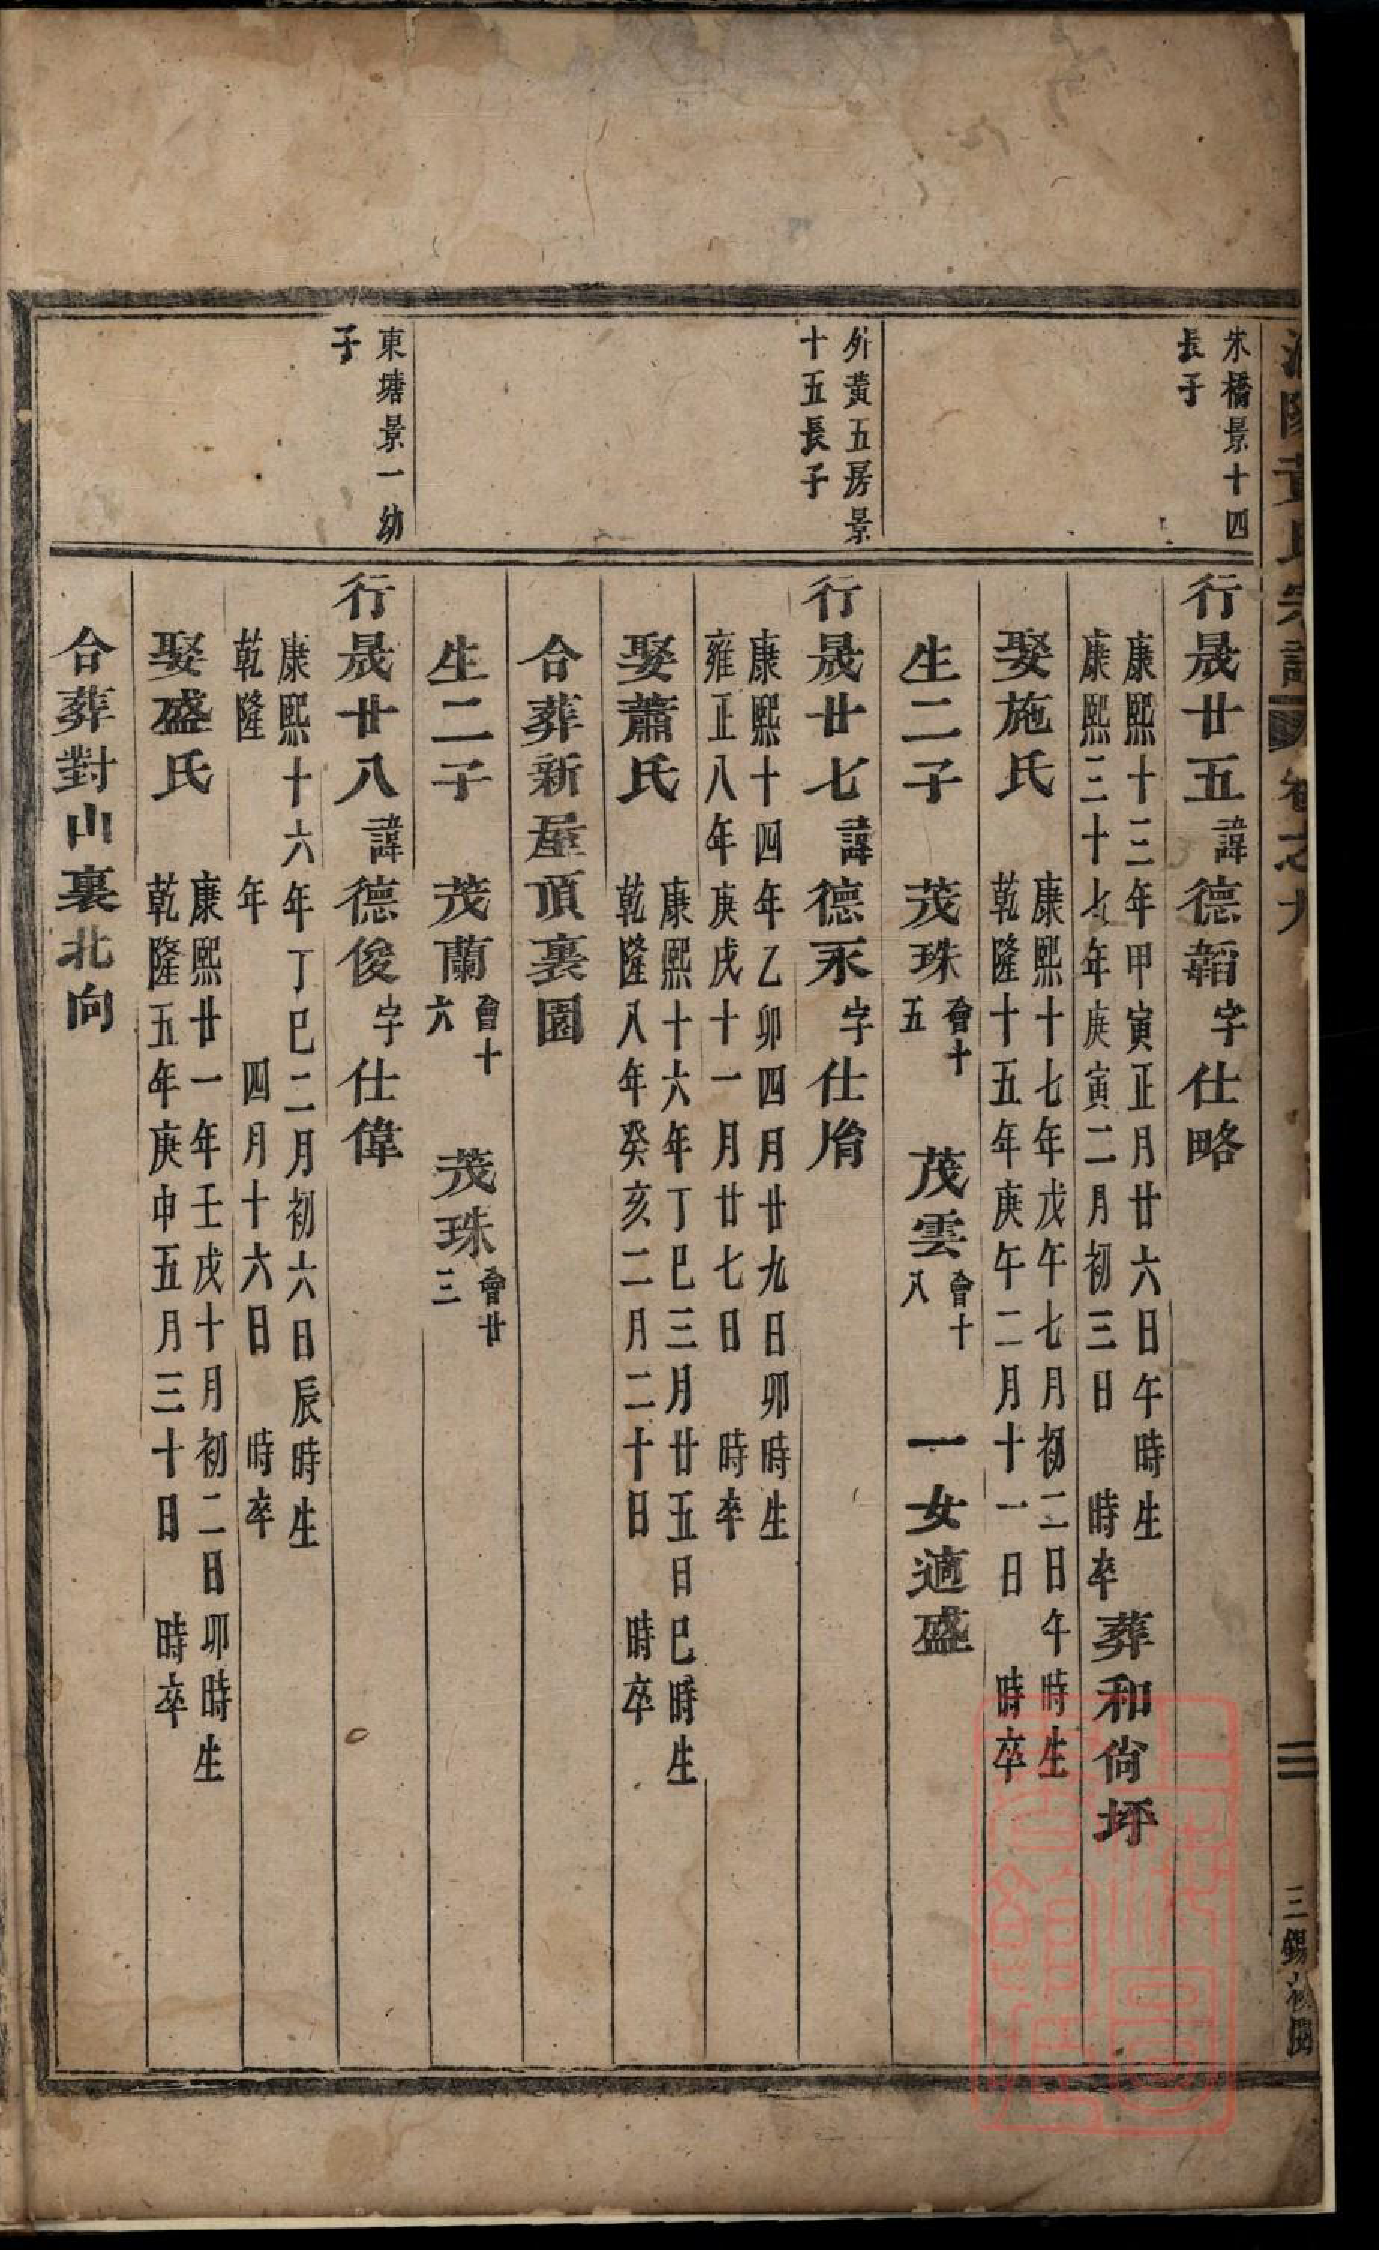 黄氏宗譜 卷之九 二 三錫
朱橋景十四
長子
行晟廿五諱德韜字仕略
康熙十三年甲寅正月廿六日午時生
康熙三十七年庚寅二月初三日 時卒
葬和尙坪
娶施氏
康熙十七年戊午七月初二日午時生
乾隆十五年庚午二月十一日 時卒
生二子 茂珠會十五 茂雲會十八 一女適盛
外黃五房景
十五長子
行晟廿七諱德永字仕脀
康熙十四年乙卯四月廿九日卯時生
雍正八年庚戌十一月廿七日 時卒
娶蕭氏
康熙十六年丁巳三月廿五日巳時生
乾隆八年癸亥二月二十日 時卒
合葬新屋頂裏園
生二子 茂蘭會十六 茂珠會廿三
東塘景一幼
子
行晟廿八諱德俊字仕偉
康熙十六年丁巳二月初六日辰時生
乾隆 年 四月十六日 時卒
娶盛氏
康熙廿一年壬戌十月初二日卯時生
乾隆五年庚申五月三十日 時卒
合葬對山裏北向